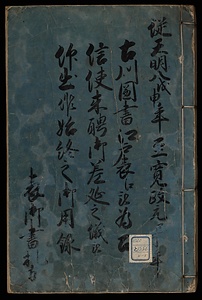 従天明八戊申年至寛政元
古川図書江戸表江為
信使来聘御差延之儀
作出始終之御用録
表御書